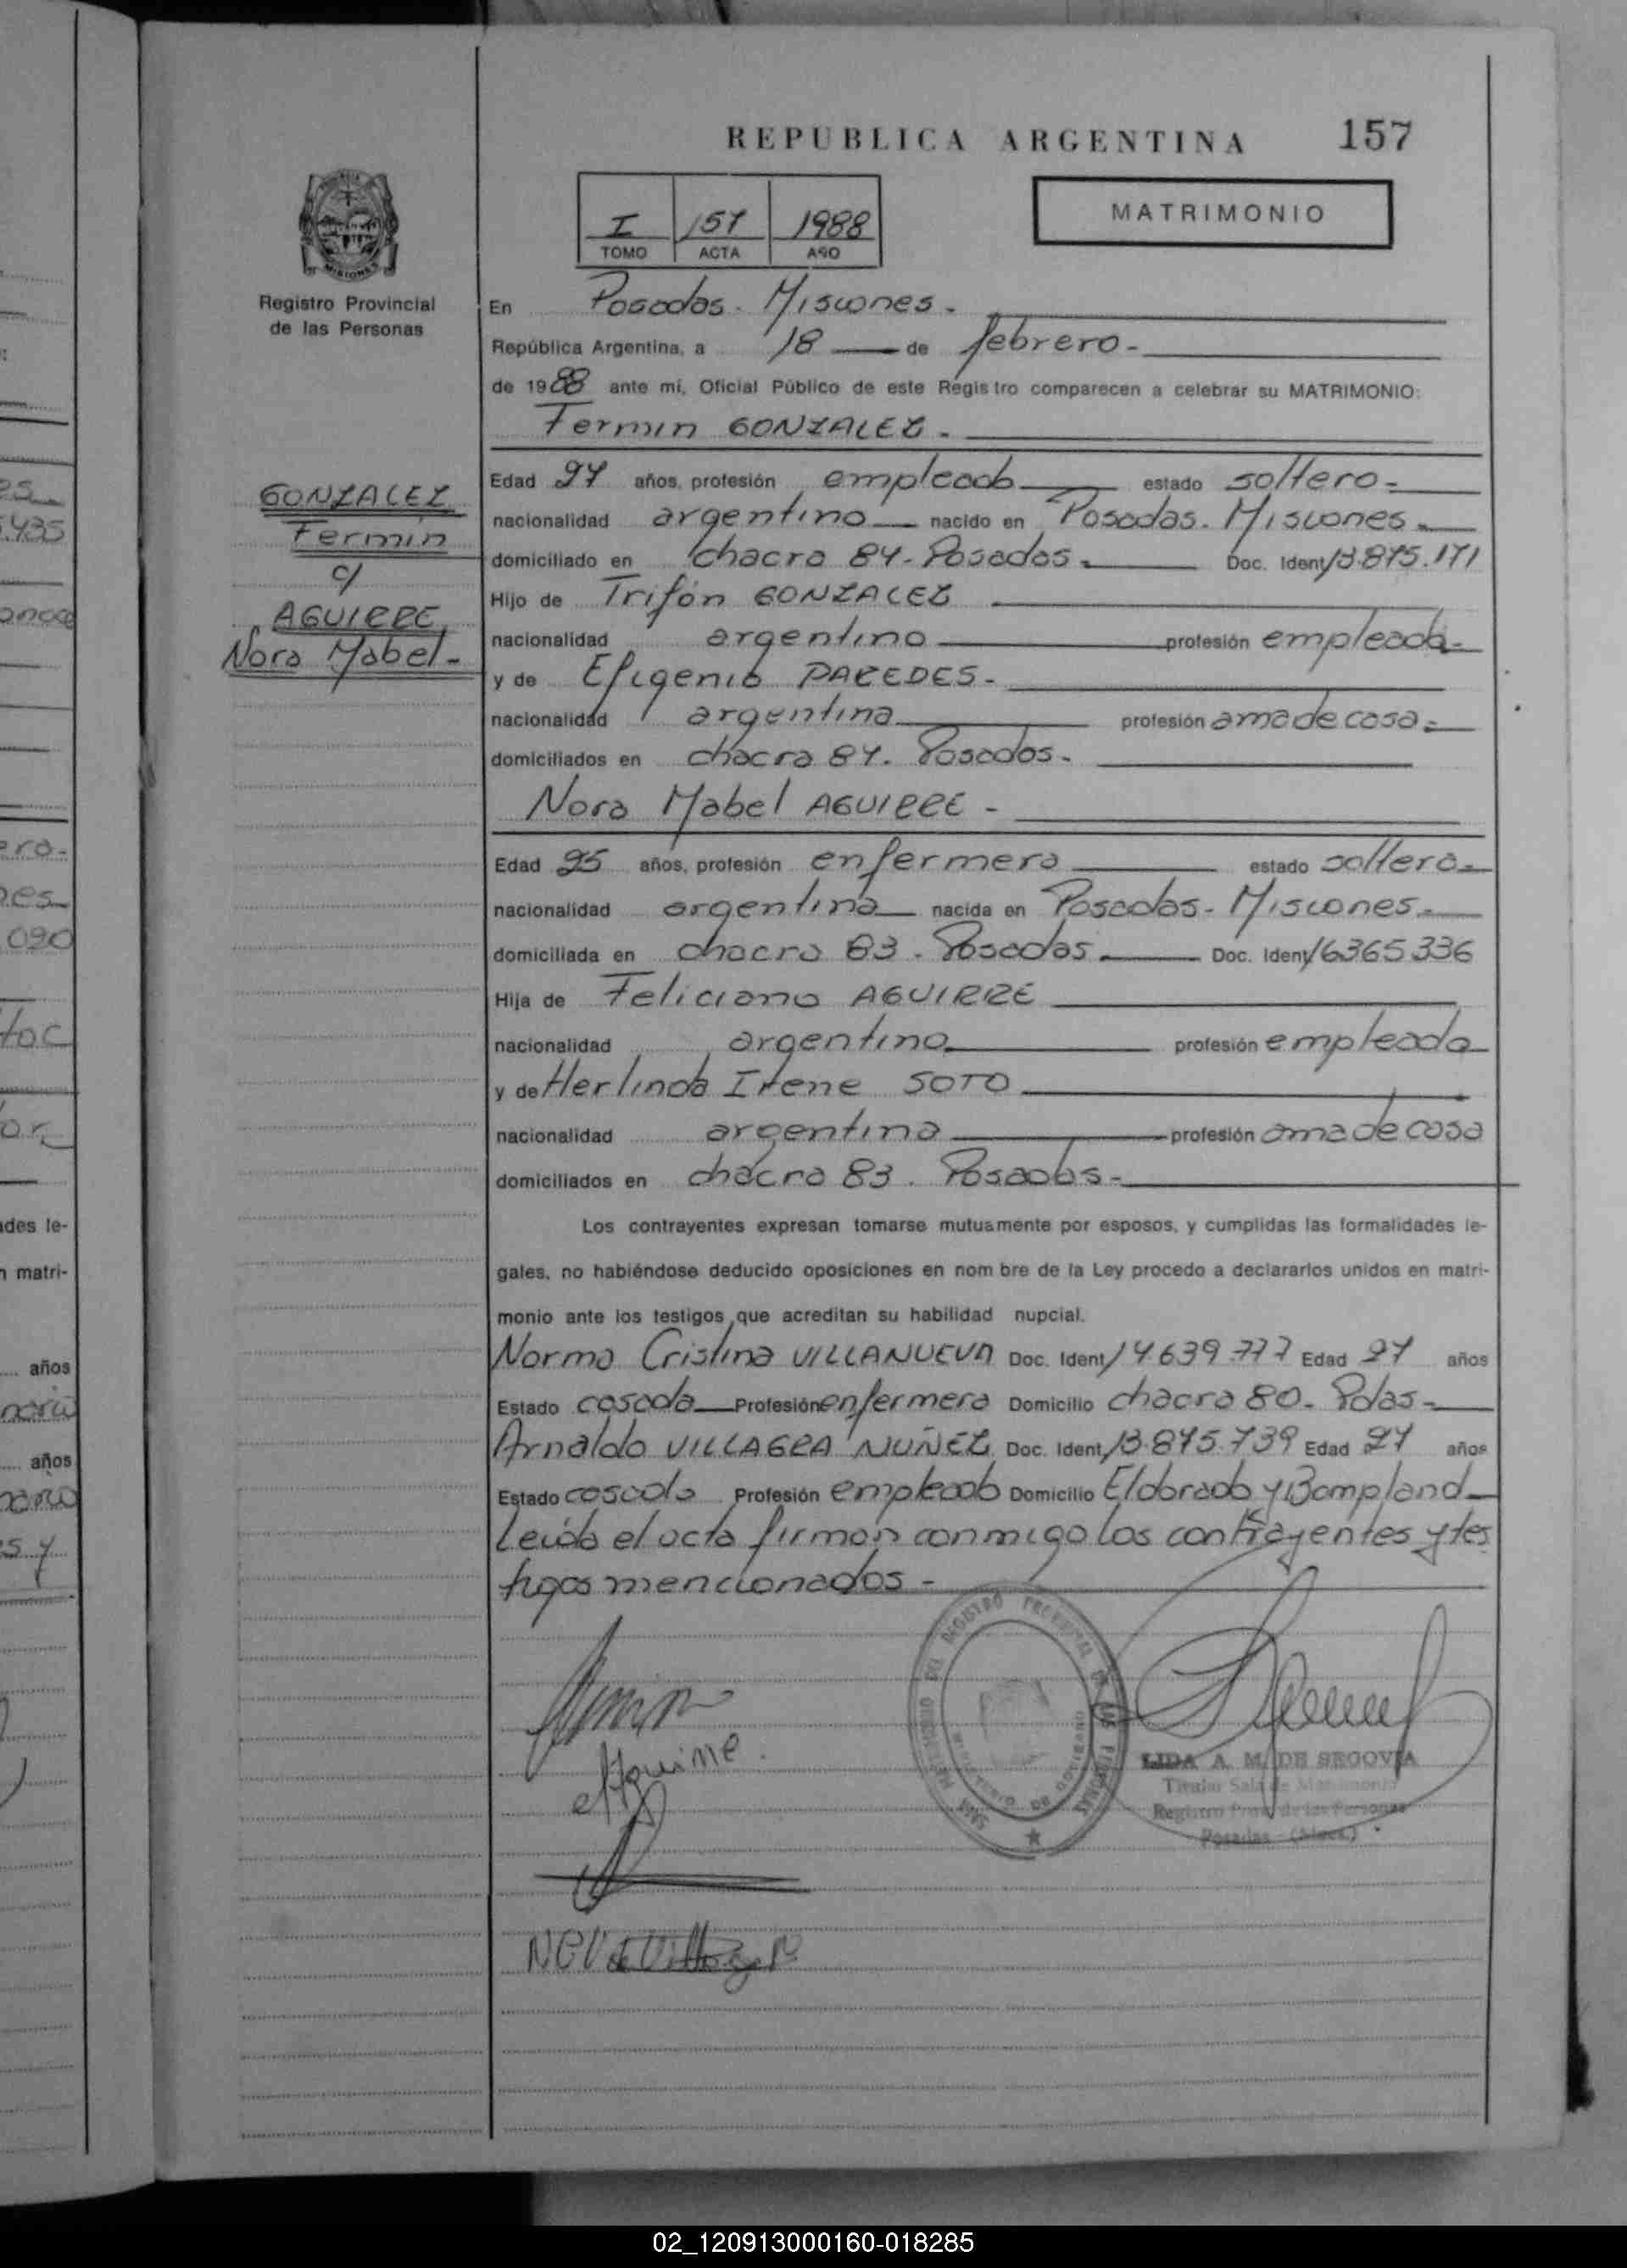 REPUBLICA ARGENTINA 157
I 157 1988
TOMO ACTA AÑO
MATRIMONIO
MISIONES
Registro Provincial
de las Personas
En Posadas - Misiones -
República Argentina, a 18 de febrero -
de 1988 ante mí, Oficial Público de este Registro comparecen a celebrar su MATRIMONIO:
Fermin GONZALEZ -
GONZALEZ
Fermin
c/
AGUIRRE
Nora Mabel -
Edad 27 años, profesión empleado estado soltero -
nacionalidad argentino nacido en Posadas - Misiones -
domiciliado en chacra 84 - Posadas - Doc. Ident 13.875.171
Hijo de Trifón GONZALEZ
nacionalidad argentino profesión empleado -
y de Efigenia PAREDES -
nacionalidad argentina profesión ama de casa -
domiciliados en chacra 84. Posadas -
Nora Mabel AGUIRRE -
Edad 25 años, profesión enfermera estado soltera -
nacionalidad argentina nacida en Posadas - Misiones -
domiciliada en chacra 83 - Posadas - Doc. Ident 16365336
Hija de Feliciano AGUIRRE
nacionalidad argentino profesión empleado
y de Herlinda Irene SOTO
nacionalidad argentina profesión ama de casa
domiciliados en chacra 83. Posadas -
Los contrayentes expresan tomarse mutuamente por esposos, y cumplidas las formalidades le-
gales, no habiéndose deducido oposiciones en nom bre de la Ley procedo a declararlos unidos en matri-
monio ante los testigos que acreditan su habilidad nupcial.
Norma Cristina VILLANUEVA Doc. Ident 14.639.777 Edad 27 años
Estado casada Profesión enfermera Domicilio chacra 80 - Pdas -
Arnaldo VILLAGRA NUÑEZ Doc. Ident 13.875.739 Edad 27 años
Estado casado Profesión empleado Domicilio Eldorado y Bompland -
Leída el acta firman conmigo los contrayentes y tes
tigos mencionados -
LIDA A. M. DE SEGOVIA
Titular Sala de Matrimonio
Registro Prov. de las Personas
Posadas - (Mnes.)
02_120913000160-018285